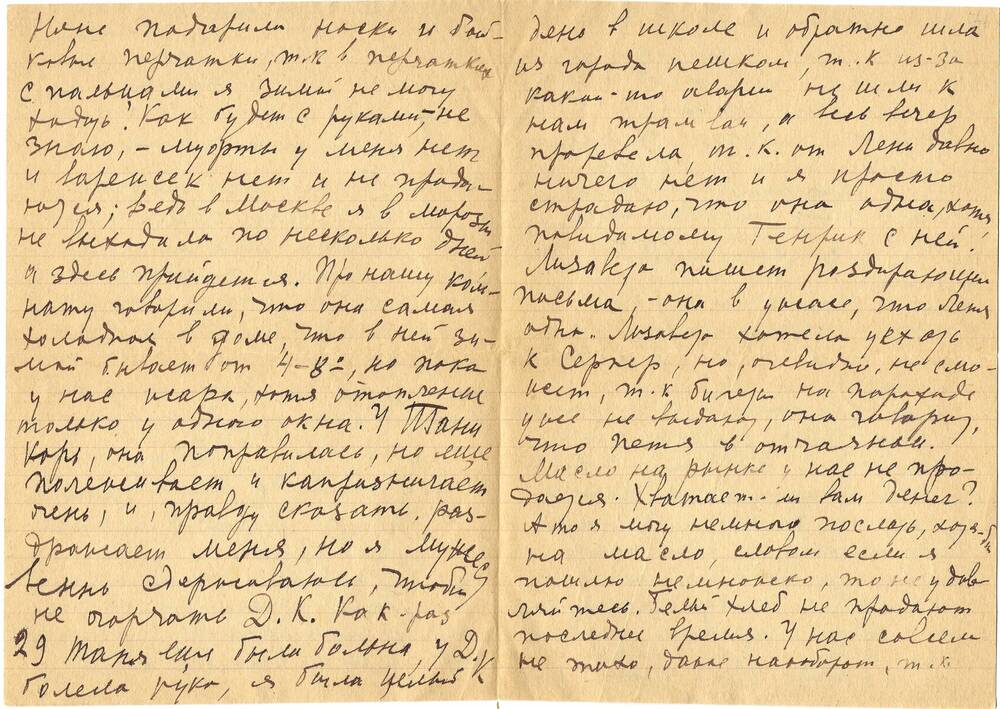 Ноне подарили носки и бай-
ковые перчатки, т.к в перчатках
с пальцами я зимой не могу
ходить! Как будет с руками, не
знаю, – муфты у меня нет
и варежек нет и не прода-
ются; ведь в Москве я в морозы
не выходила по несколько дней
а здесь прийдется. Про нашу ком-
нату говорили, что она самая
холодная в доме, что в ней зи-
мой бывает от 4-8°, но пока
у нас жара, хотя отопление
только у одного окна. У Тани
корь, она поправилась, но еще
полеживает и капризничает
очень, и, правду сказать, раз-
дражает меня, но я мужест
венно сдерживаюсь, чтобы
не огорчать Д.К. Как-раз
29 Таня еще была больна, у Д.К
болела рука, я была целый
день в школе и обратно шла
из города пешком, т.к из-за
какой-то аварии не шли к
нам трамваи, а весь вечер
проревела, т.к. от Лены давно
ничего нет и я просто
страдаю, что она одна, хотя
повидимому Генрик с ней!
Лизавета пишет раздирающие
письма, – она в ужасе, что Леня
одна. Лизавета хотела уехать
к Сергею, но, очевидно, не смо-
жет, т.к билеты на пароходе
уже не выдают, она говорит,
что Петя в отчаяньи.
Масло на рынке у нас не про-
дается. Хватает-ли вам денег?
А то я могу немного послать, хотя-бы
на масло, словом если я
пошлю немножко, то не удив-
ляйтесь. Белый хлеб не продают
последнее время. У нас совсем
не тихо, даже наоборот, т.к